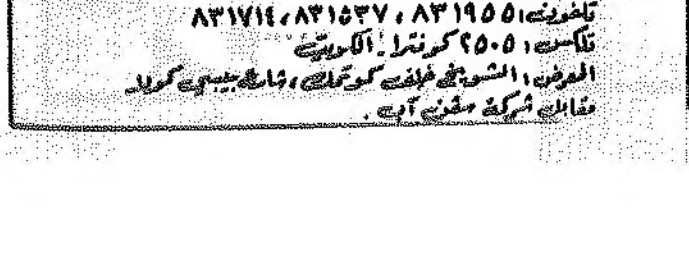 تلفون: ٨٣١٩٥٥، ٨٣١٥٣٧، ٨٣١٧١٤
تلكس: ٢٥٠٥ كونترا. الكويت
المعرض: الشويخ خلف كوتمك، شارع بيبسي كولا
مقابل شركة سفن آب.